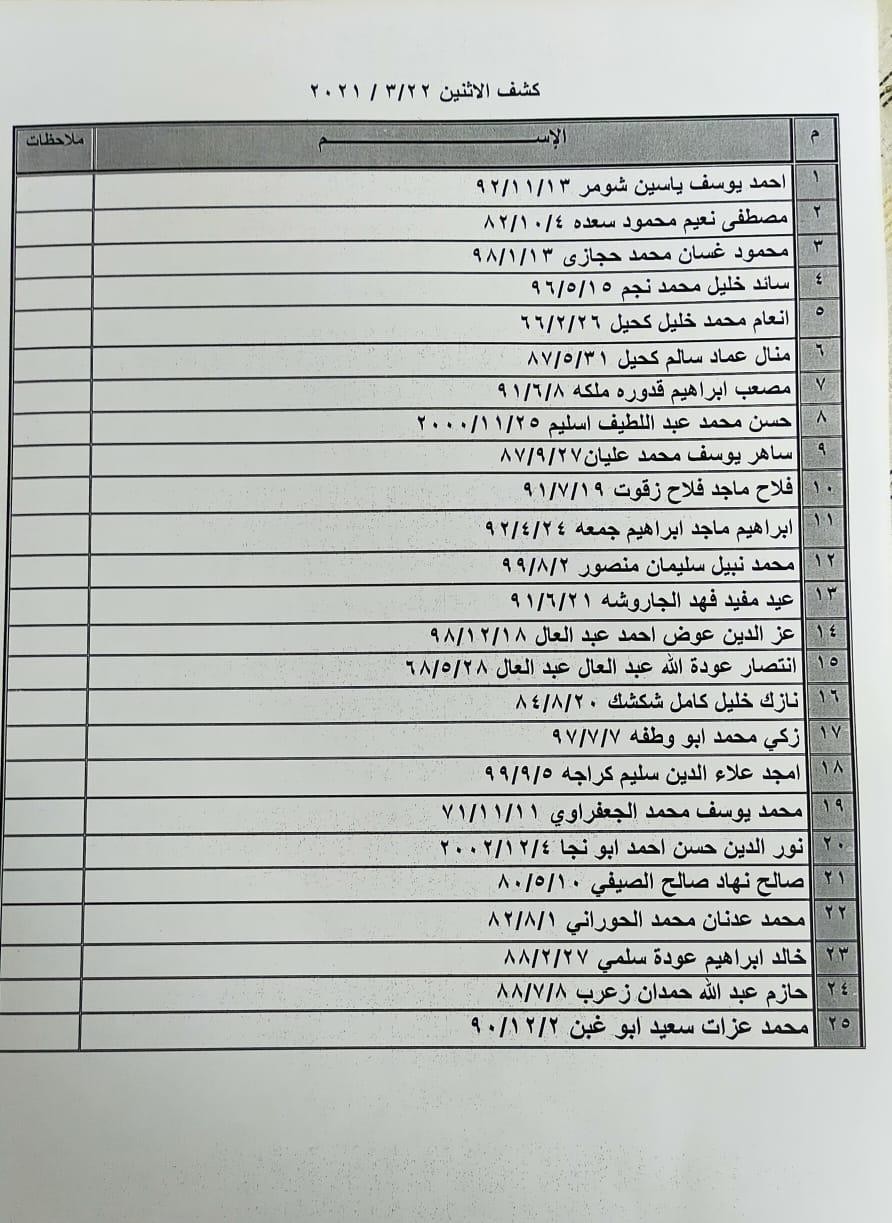 كشف الاثنين ٣/٢٢ / ٢٠٢١
م الإســــــــــــم ملاحظات
١ احمد يوسف ياسين شومر ٩٢/١١/١٣
٢ مصطفى نعيم محمود سعده ٨٢/١٠/٤
٣ محمود غسان محمد حجازى ٩٨/١/١٣
٤ سائد خليل محمد نجم ٩٦/٥/١٥
٥ انعام محمد خليل كحيل ٦٦/٢/٢٦
٦ منال عماد سالم كحيل ٨٧/٥/٣١
٧ مصعب ابراهيم قدوره ملكه ٩١/٦/٨
٨ حسن محمد عبد اللطيف اسليم ٢٠٠٠/١١/٢٥
٩ ساهر يوسف محمد عليان٨٧/٩/٢٧
١٠ فلاح ماجد فلاح زقوت ٩١/٧/١٩
١١ ابراهيم ماجد ابراهيم جمعه ٩٢/٤/٢٤
١٢ محمد نبيل سليمان منصور ٩٩/٨/٢
١٣ عيد مفيد فهد الجاروشه ٩١/٦/٢١
١٤ عز الدين عوض احمد عبد العال ٩٨/١٢/١٨
١٥ انتصار عودة الله عبد العال عبد العال ٦٨/٥/٢٨
١٦ نازك خليل كامل شكشك ٨٤/٨/٢٠
١٧ زكي محمد ابو وطفه ٩٧/٧/٧
١٨ امجد علاء الدين سليم كراجه ٩٩/٩/٥
١٩ محمد يوسف محمد الجعفراوي ٧١/١١/١١
٢٠ نور الدين حسن احمد ابو نجا ٢٠٠٢/١٢/٤
٢١ صالح نهاد صالح الصيفي ٨٠/٥/١٠
٢٢ محمد عدنان محمد الحوراني ٨٢/٨/١
٢٣ خالد ابراهيم عودة سلمي ٨٨/٢/٢٧
٢٤ حازم عبد الله حمدان زعرب ٨٨/٧/٨
٢٥ محمد عزات سعيد ابو غبن ٩٠/١٢/٢